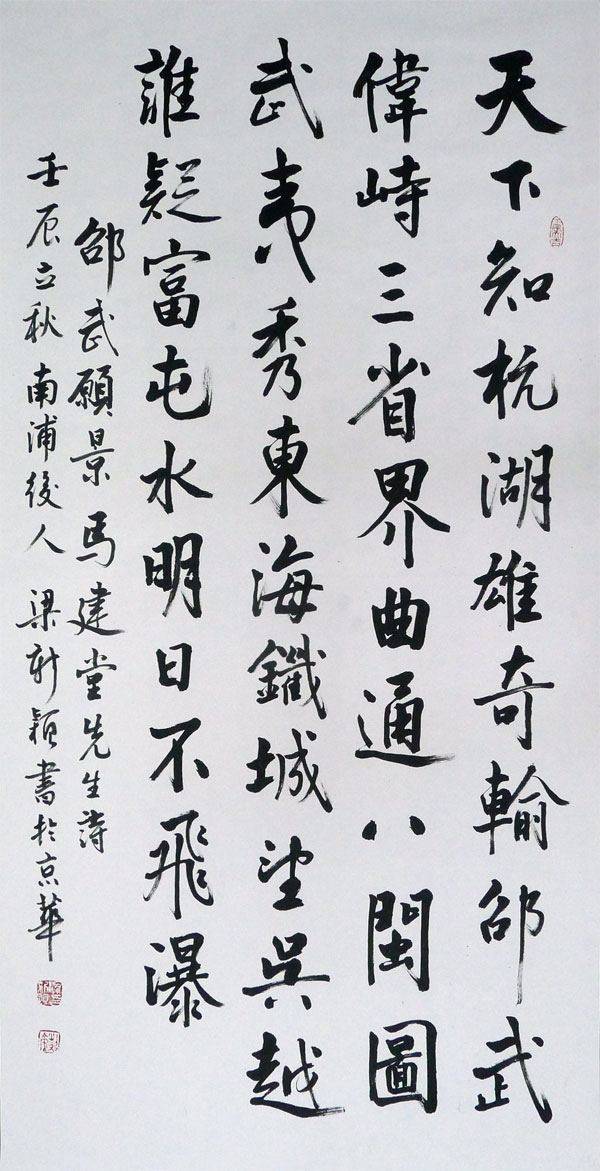 天下知杭湖雄奇輸邵武
偉峙三省界曲通八閩圖
武夷秀東海鐵城望吳越
誰疑富屯水明日不飛瀑
邵武願景馬建堂先生詩
壬辰立秋南浦後人梁新穎書於京華